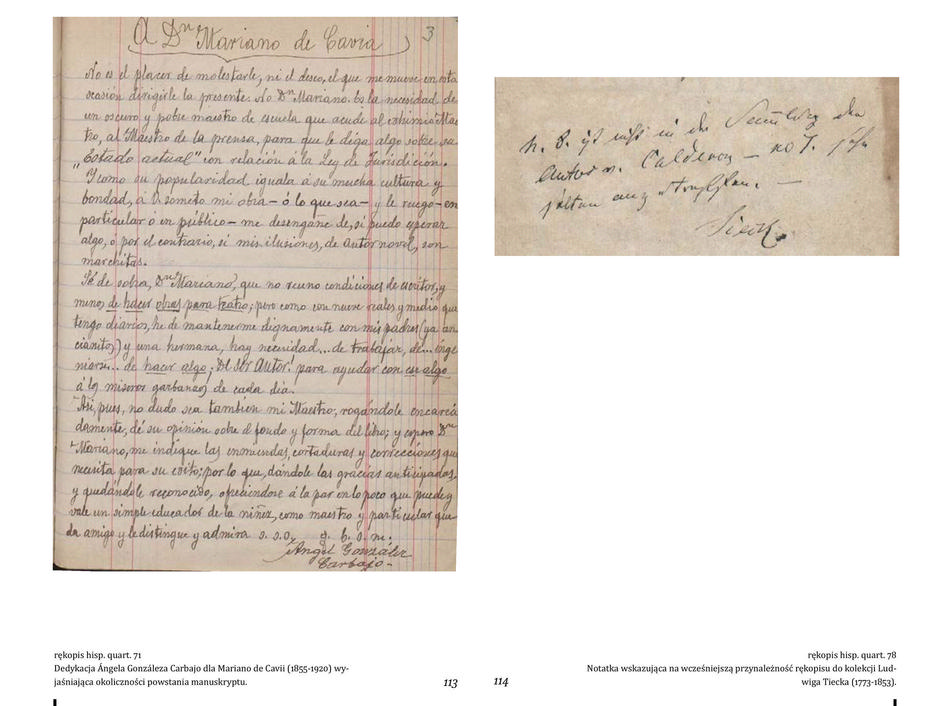 A Dn Mariano de Cavia
3
No es el placer de molestarle, ni el deseo, el que me mueve en esta
ocasión dirigirle la presente. No Dn Mariano. Es la necesidad de
un oscuro y pobre maestro de escuela que acude al eximio Maes
tro, al Maestro de la prensa, para que le diga algo sobre su
„Estado actual” con relación á la Ley de Jurisdicción.
Y como su popularidad iguala á su mucha cultura y
bondad, a V. someto mi obra - ó lo que sea - y le ruego - en
particular ó en público - me desengañe de, si puedo esperar
algo, ó por el contrario, si mis ilusiones, de Autor novel, son
marchitas.
Sé de sobra, Dn Mariano, que no reuno condiciones de escritor, y
menos de hacer obras para teatro; pero como con nueve reales y medio que
tengo diarios, he de mantenerme dignamente con mis padres (ya an
cianitos) y una hermana, hay necesidad... de trabajar, de... inge
niarse... de hacer algo; De ser Autor! para ayudar con ese algo
á los míseros garbanzos de cada día.
Así, pues, no dudo sea también mi Maestro; rogándole encareci
damente, dé su opinión sobre el fondo y forma del libro; y espero Dn
Mariano, me indique las enmiendas, cortaduras y correcciones que
necesita para su éxito; por lo que, dándole las gracias anticipadas,
y quedándole reconocido, ofreciéndose á la par en lo poco que puede y
vale un simple educador de la niñez, como maestro y particular que
da amigo y le distingue y admira s. s. q. b. s. m.
Angel González
Carbajo-
N. B. ist nicht in der
Autor v. Calderon - no
Tieck
rękopis hisp. quart. 71
Dedykacja Ángela Gonzáleza Carbajo dla Mariano de Cavii (1855-1920) wy-
jaśniająca okoliczności powstania manuskryptu.
113
114
rękopis hisp. quart. 78
Notatka wskazująca na wcześniejszą przynależność rękopisu do kolekcji Lud-
wiga Tiecka (1773-1853).